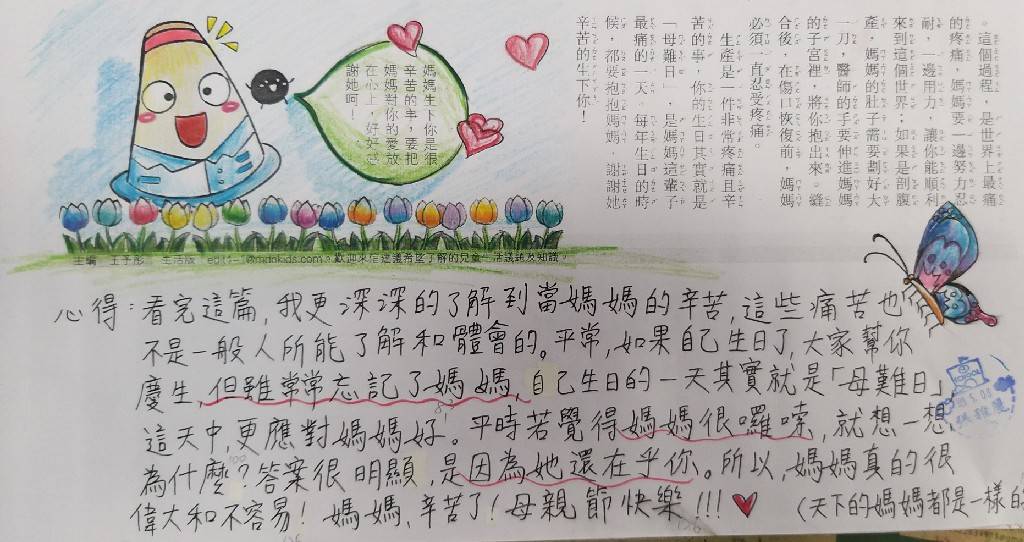 。這個過程，是世界上最痛
的疼痛，媽媽要一邊努力忍
耐，一邊用力，讓你能順利
來到這個世界；如果是剖腹
產，媽媽的肚子需要劃好大
一刀，醫師的手要伸進媽媽
的子宮裡，將你抱出來。縫
合後，在傷口恢復前，媽媽
必須一直忍受疼痛。
生產是一件非常疼痛且辛
苦的事，你的生日其實就是
「母難日」，是媽媽這輩子
最痛的一天。每年生日的時
候，都要抱抱媽媽，謝謝她
辛苦的生下你！
媽媽生下你是很
辛苦的年，要把
媽媽對你的愛放
在心上，好好感
謝她啊！
心得：看完這篇，我更深深的了解到當媽媽的辛苦，這些痛苦也
不是一般人所能了解和體會的。平常，如果自己生日了，大家幫你
慶生，但雖常常忘記了媽媽，自己生日的一天其實就是「母難日」，
這天中，更應對媽媽好。平時若覺得媽媽很囉嗦，就想一想
為什麼？答案很明顯，是因為她還在乎你。所以，媽媽真的很
偉大和不容易！媽媽，辛苦了！母親節快樂!!!
（天下的媽媽都是一樣的